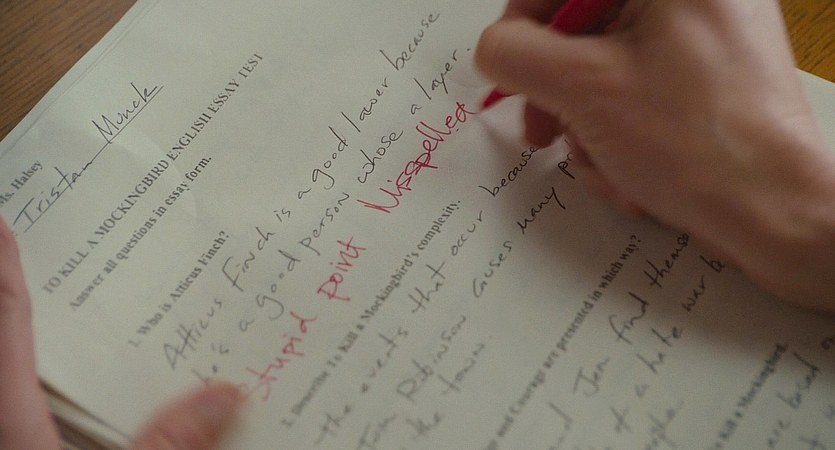 Ms. Halsey
Tristan Munck
TO KILL A MOCKINGBIRD ENGLISH ESSAY TEST
Answer all questions in essay form.
1. Who is Atticus Finch?
Atticus Finch is a good lawer because
he's a good person whose a layer.
Stupid point Misspelled
2. Describe To Kill a Mockingbird's complexity.
the events that occur because
Tom Robinson causes many
the town.
and Courage are presented in which way?
Jem find
of a hate war
Kill a Mockingbird.
are based